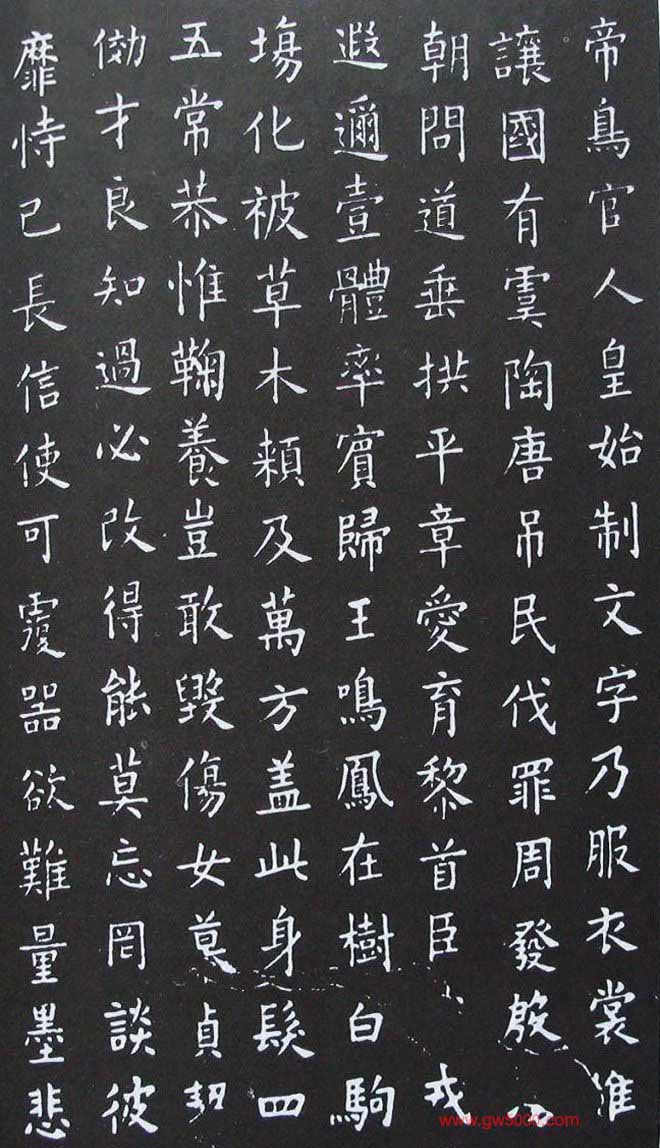 帝鳥官人皇始制文字乃服衣裳推
讓國有虞陶唐吊民伐罪周發殷
朝問道垂拱平章愛育黎首臣戎
遐邇壹體率賓歸王鳴鳳在樹白駒
塲化被草木頼及萬方盖此身髮四
五常恭惟鞠養豈敢毀傷女慕貞絜
効才良知過必改得能莫忘罔談彼
靡恃己長信使可覆器欲難量墨悲